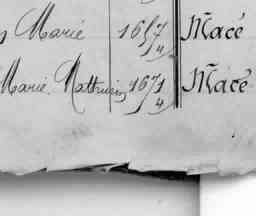 Marié 1657/4 Macé
Marie Mathurin 1671/4 Macé